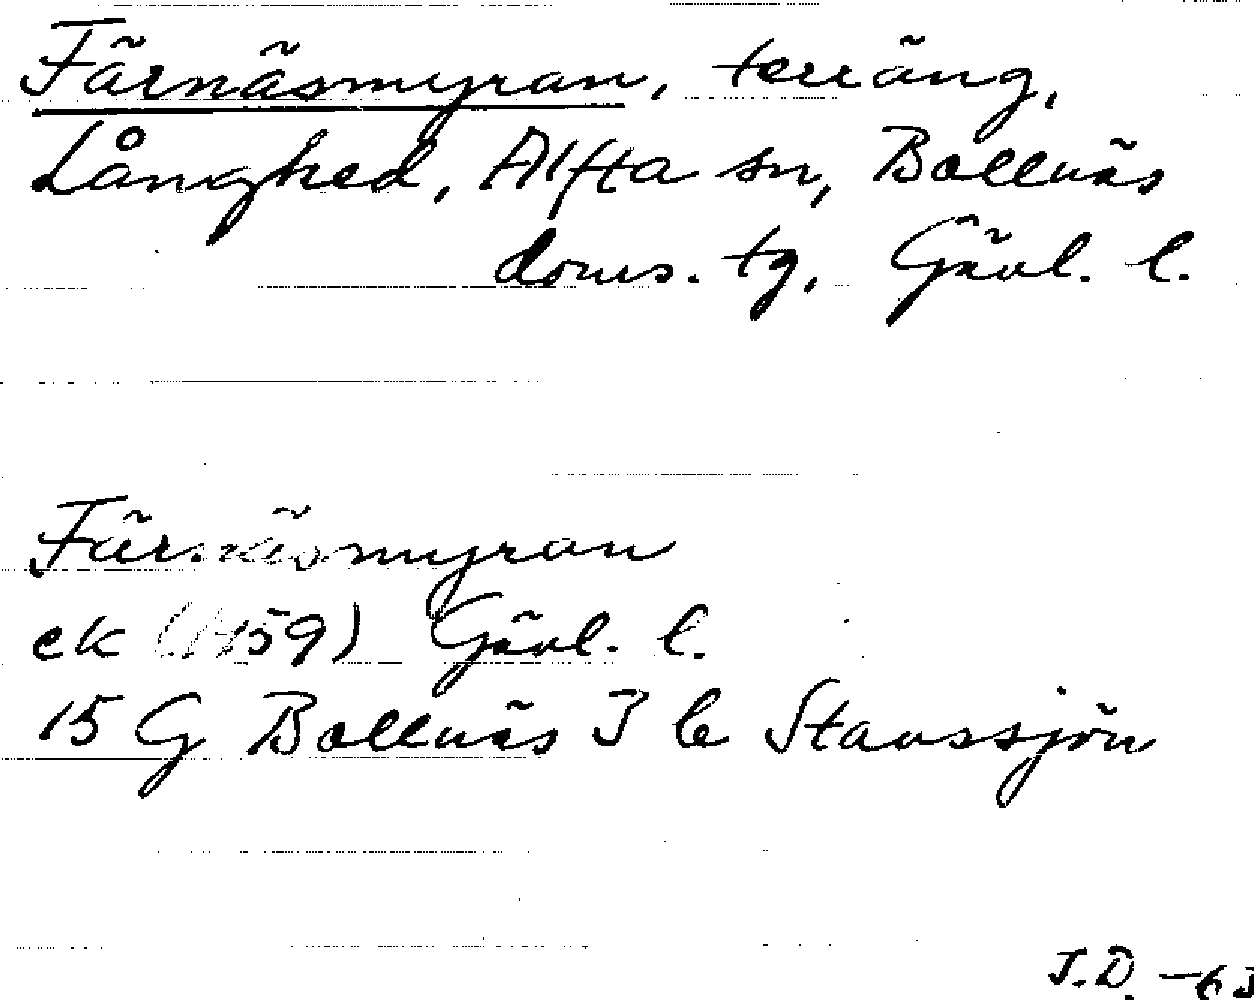 Färnäsmyran, terräng,
Långhed, Alfta sn, Bollnäs
doms. tg, Gävl. l.
Färnäsmyran
ek (1959) Gävl. l.
15 G Bollnäs 3 b Stavssjön
J.D. -63